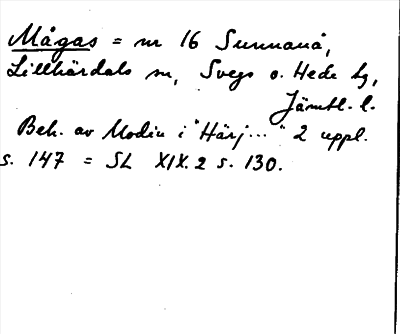 Mågas = nr 16 Sunnanå,
Lillhärdals sn, Svegs o. Hede tg,
Jämtl. l.
Beh. av Modin i "Härj..." 2 uppl.
s. 147 = SL XIX. 2 s. 130.